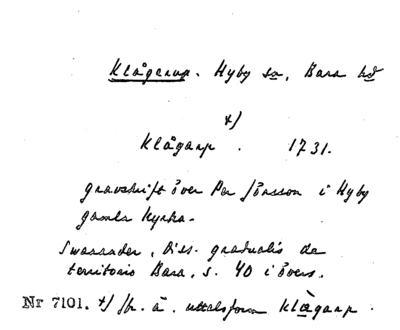 Klågerup. Hyby sn, Bara hd
x)
Klågarp. 1731.
gravskrift över Per Jönsson i Hyby
gamla kyrka.
Swanander, Diss. gradualis de
territorio Bara, s. 40 i övers.
Nr 7101. x) fr. å. uttalsform klågarp.